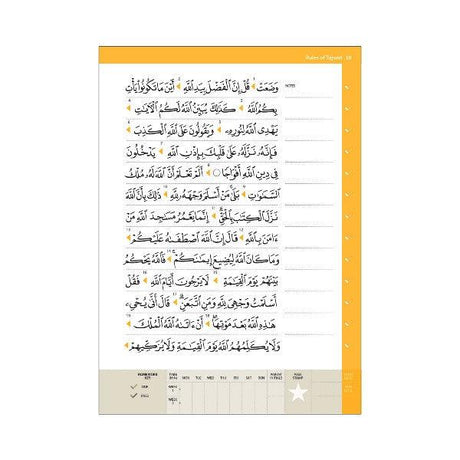 Rules of Tajweed
NOTES
وَضَعَتْ ۱ قُلْ إِنَّ ٱلْفَضْلَ بِيَدِ ٱللَّهِ ۲ أَيْنَ مَا تَكُونُوا۟ يَأْتِ
بِكُمُ ٱللَّهُ ۳ كَذَٰلِكَ يُبَيِّنُ ٱللَّهُ لَكُمُ ٱلْءَايَٰتِ
يَهْدِى ٱللَّهُ لِنُورِهِۦ وَيَقُولُونَ عَلَى ٱللَّهِ ٱلْكَذِبَ
فَإِنَّهُۥ نَزَّلَهُۥ عَلَىٰ قَلْبِكَ بِإِذْنِ ٱللَّهِ يَدْخُلُونَ
فِى دِينِ ٱللَّهِ أَفْوَاجًا أَلَمْ تَعْلَمْ أَنَّ ٱللَّهَ لَهُۥ مُلْكُ
ٱلسَّمَٰوَٰتِ بَلَىٰ مَنْ أَسْلَمَ وَجْهَهُۥ لِلَّهِ ذَٰلِكَ بِأَنَّ ٱللَّهَ
نَزَّلَ ٱلْكِتَٰبَ بِٱلْحَقِّ إِنَّمَا يَعْمُرُ مَسَٰجِدَ ٱللَّهِ مَنْ
ءَامَنَ بِٱللَّهِ قَالَ إِنَّ ٱللَّهَ ٱصْطَفَىٰهُ عَلَيْكُمْ
وَمَا كَانَ ٱللَّهُ لِيُضِيعَ إِيمَٰنَكُمْ فَٱللَّهُ يَحْكُمُ
بَيْنَهُمْ يَوْمَ ٱلْقِيَٰمَةِ لَا يَرْجُونَ أَيَّامَ ٱللَّهِ فَقُلْ
أَسْلَمْتُ وَجْهِىَ لِلَّهِ وَمَنِ ٱتَّبَعَنِ قَالَ أَنَّىٰ يُحْىِۦ
هَٰذِهِ ٱللَّهُ بَعْدَ مَوْتِهَا أَنْ ءَاتَىٰهُ ٱللَّهُ ٱلْمُلْكَ
وَلَا يُكَلِّمُهُمُ ٱللَّهُ يَوْمَ ٱلْقِيَٰمَةِ وَلَا يُزَكِّيهِمْ
MON TUE WED THU FRI SAT SUN
WEEK 1
WEEK 2